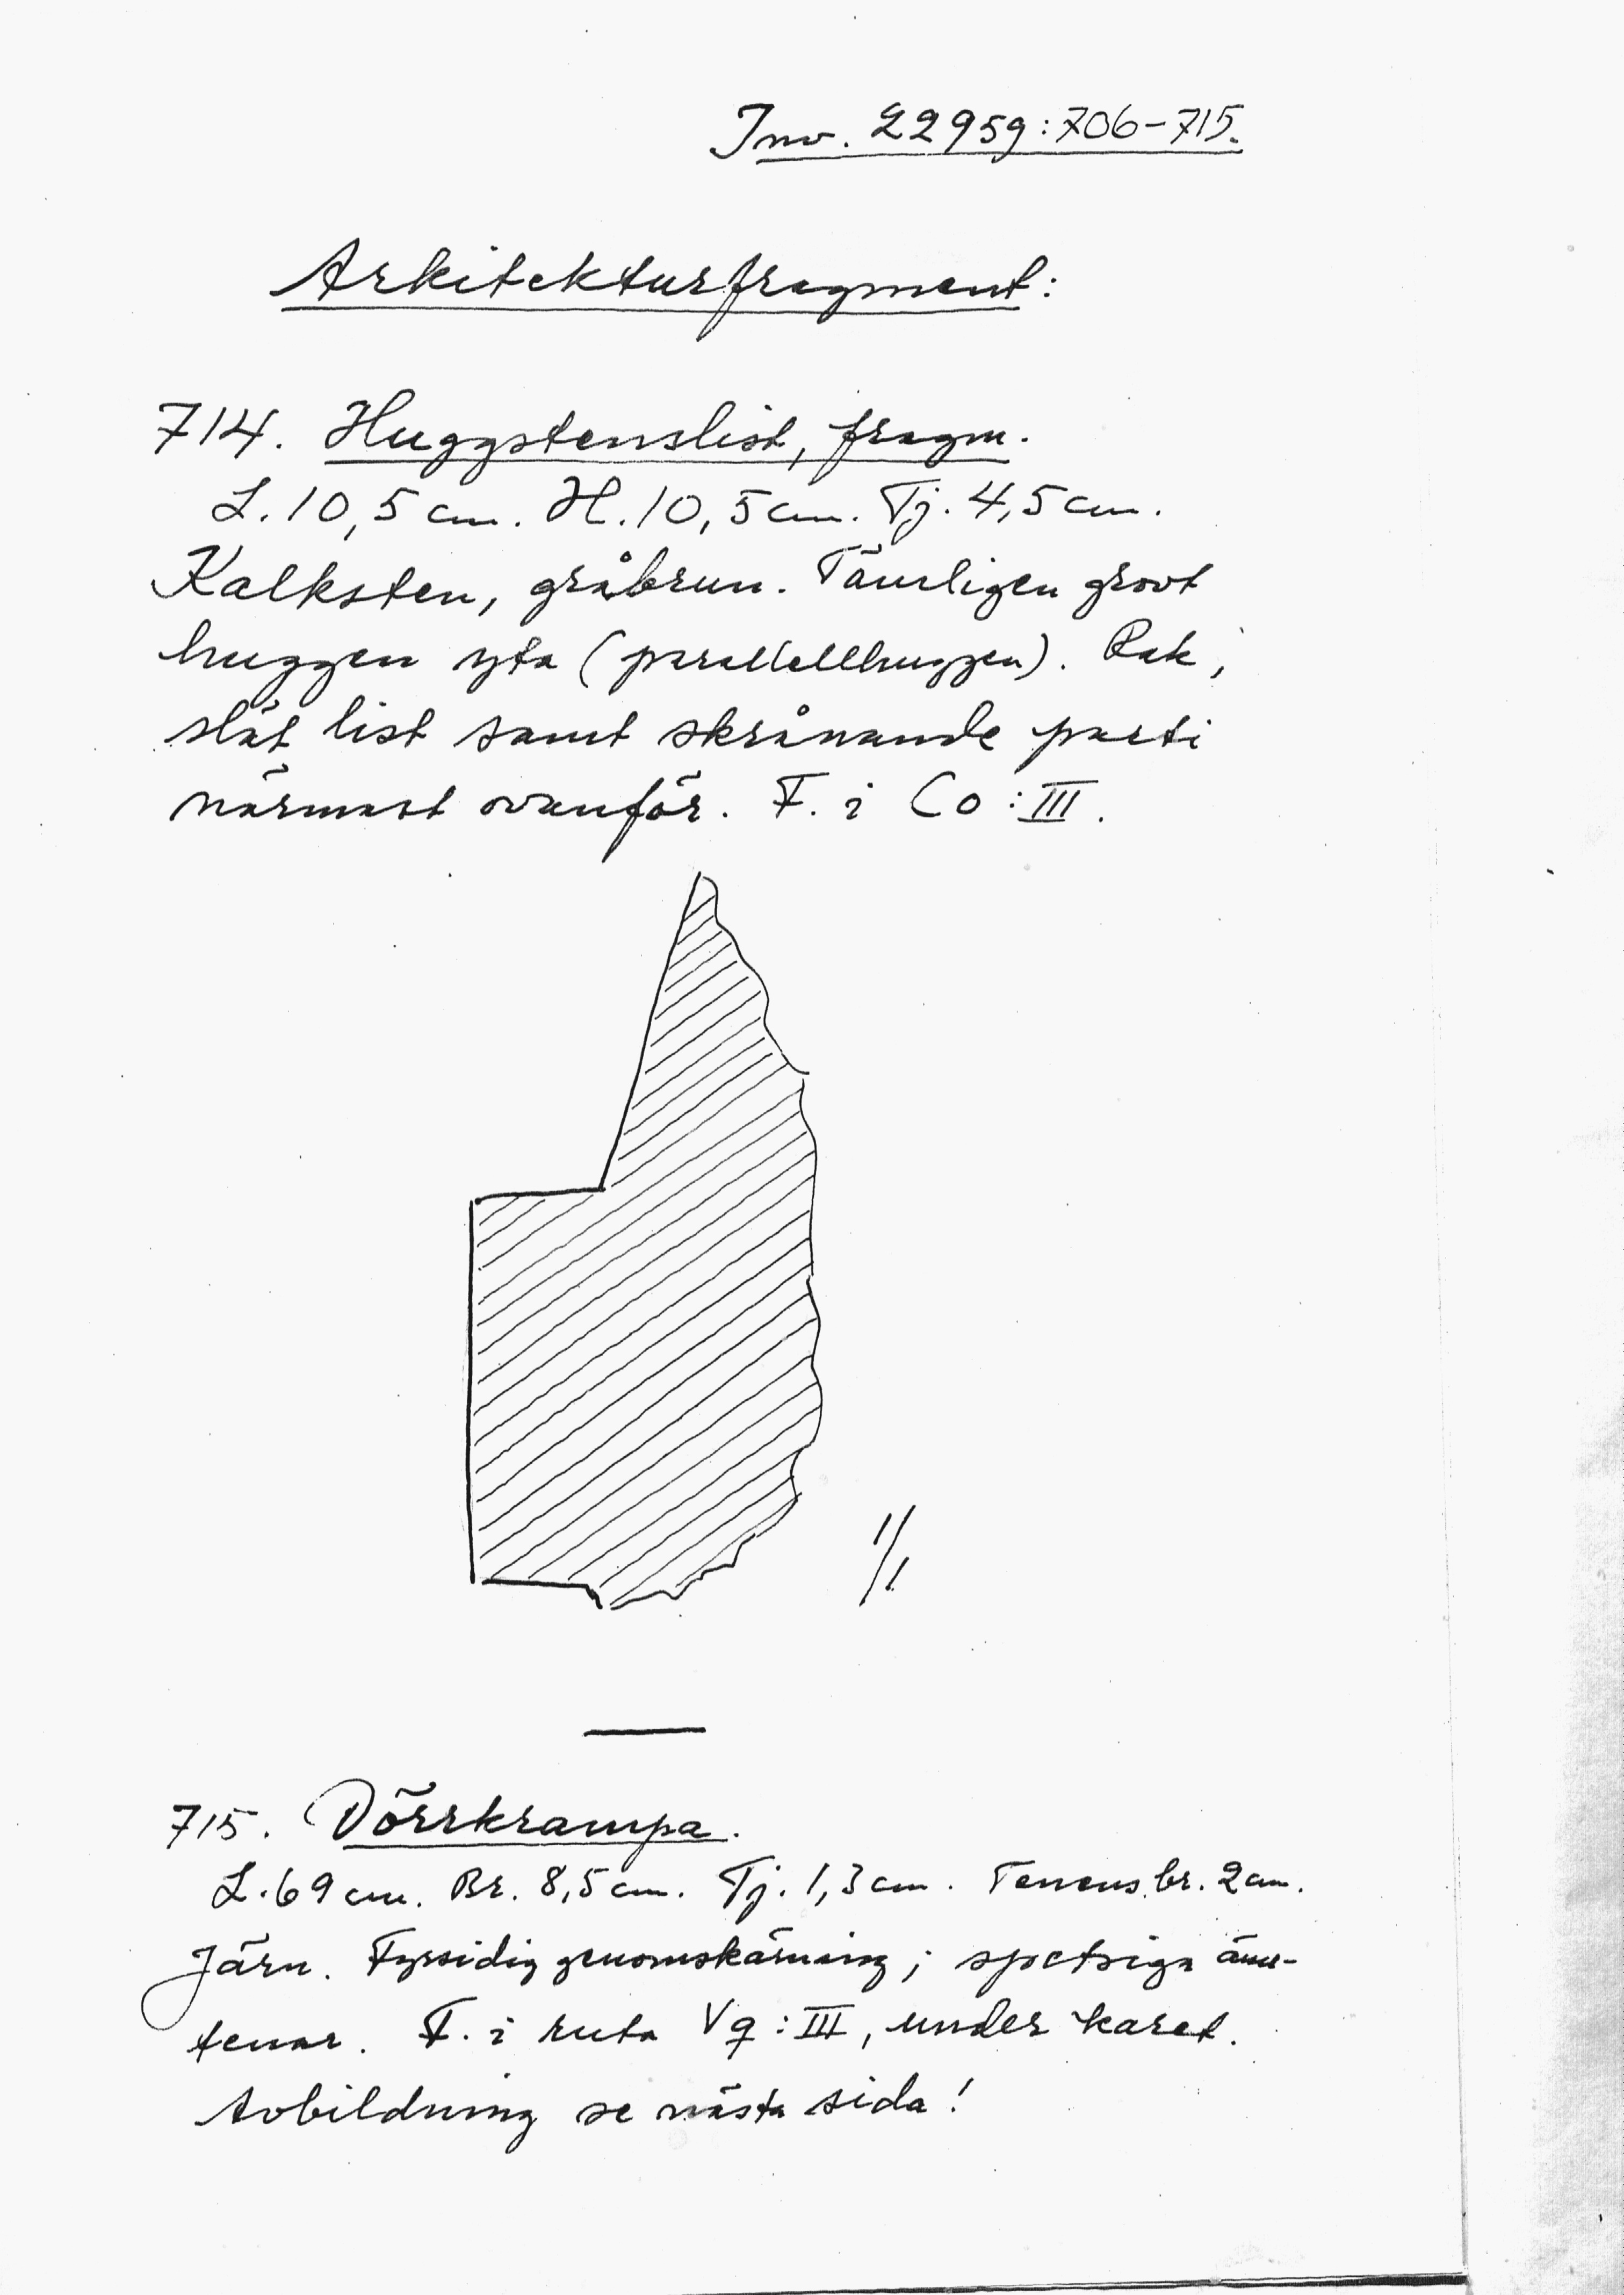 Inv. 22959:706-715.
Arkitekturfragment:
714. Huggstenslist, fragm.
L. 10,5 cm. H. 10,5 cm. Tj. 4,5 cm.
Kalksten, gråbrun. Tämligen grovt
huggen yta (parallellhuggen). Rak,
slät list samt skrånande parti
närmast ovanför. F. i Co:III.
1/1
715. Dörrkrampa.
L. 69 cm. Br. 8,5 cm. Tj. 1,3 cm. Tenens br. 2 cm.
Järn. Fyrsidig genomskärning; spetsiga änd-
tenar. F. i ruta Vq:III, under karet.
Avbildning se nästa sida!